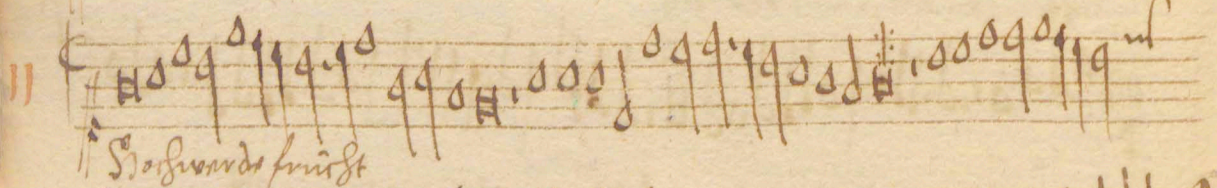 Hochwerde frucht